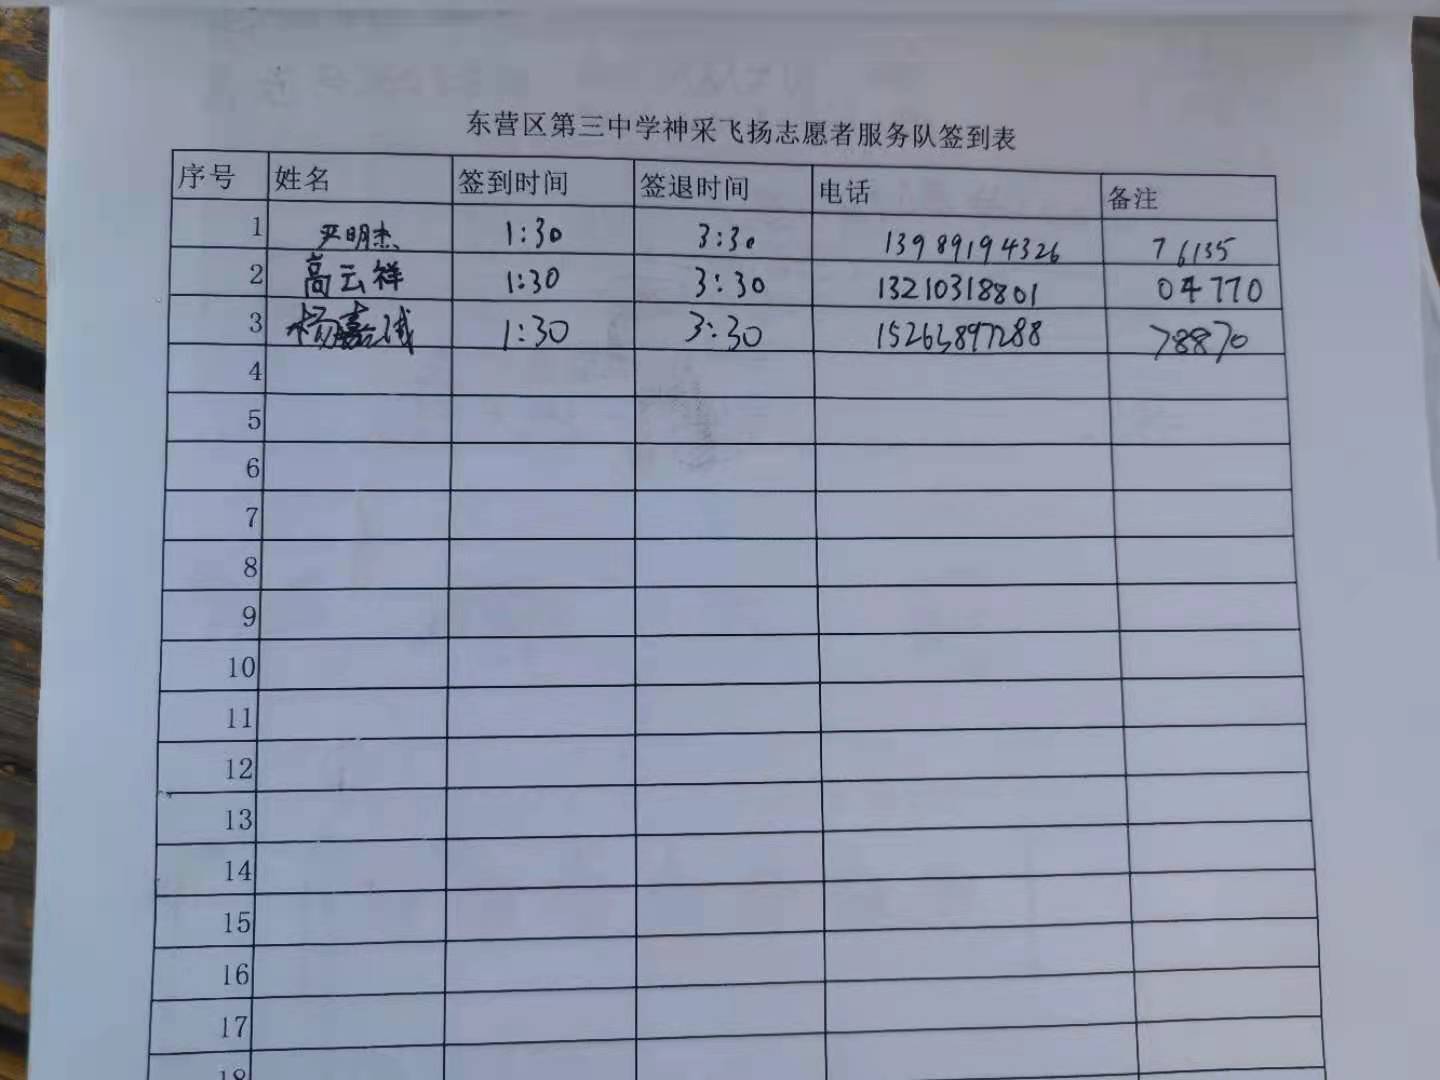 东营区第三中学神采飞扬志愿者服务队签到表
序号 姓名 签到时间 签退时间 电话 备注
1 严明杰 1:30 3:30 13989194326 76135
2 高云祥 1:30 3:30 13210318801 04770
3 杨嘉诚 1:30 3:30 15263897288 78870
4
5
6
7
8
9
10
11
12
13
14
15
16
17
18